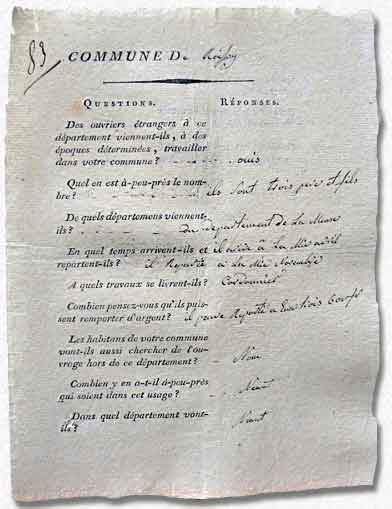 83
COMMUNE D. Roissy
QUESTIONS. RÉPONSES.
Des ouvriers étrangers à ce
département viennent-ils, à des
époques déterminées, travailler
dans votre commune? ouis
Quel en est à-peu-près le nom-
bre? ils sont trois père et fils
De quels départemens viennent-
ils? Du département de la Meuse
En quel temps arrivent-ils et il arrive à la Mi avril
repartent-ils? il Reparte à la Mi Novembre
A quels travaux se livrent-ils? Cordonnier
Combien pensez-vous qu'ils puis-
sent remporter d'argent? il peuve Reporté a Eux trois 600 f
Les habitans de votre commune
vont-ils aussi chercher de l'ou-
vrage hors de ce département? Non
Combien y en a-t-il à-peu-près
qui soient dans cet usage? Néant
Dans quel département vont-
ils? Néant